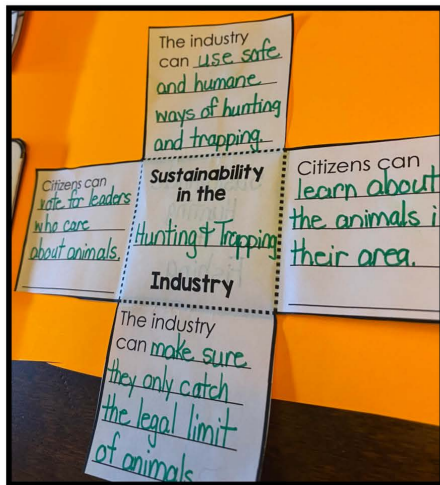 The industry
can use safe
and humane
ways of hunting
and trapping.
Citizens can
vote for leaders
who care
about animals.
Sustainability
in the
Hunting & Trapping
Industry
Citizens can
learn about
the animals i
their area.
The industry
can make sure
they only catch
the legal limit
of animals